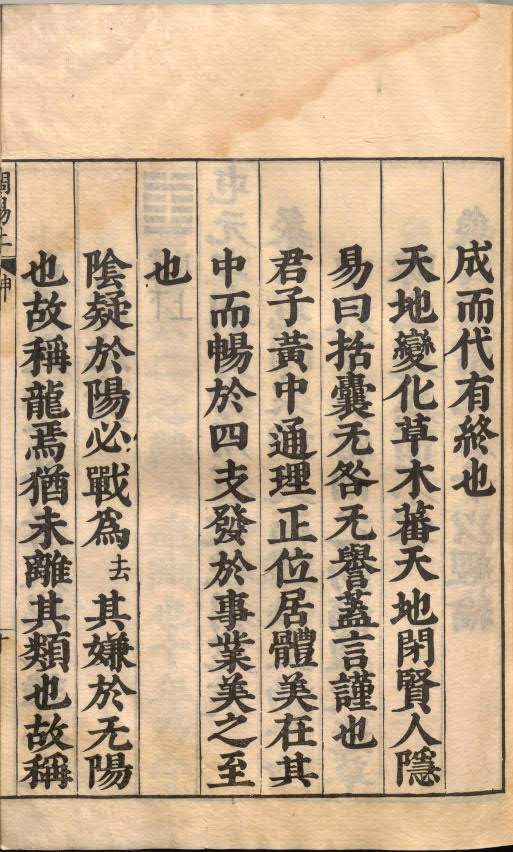 成而代有終也
天地變化草木蕃天地閉賢人隱
易曰括囊无咎无譽蓋言謹也
君子黃中通理正位居體美在其
中而暢於四支發於事業美之至
也
陰疑於陽必戰為去其嫌於无陽
也故稱龍焉猶未離其類也故稱
周易上
坤